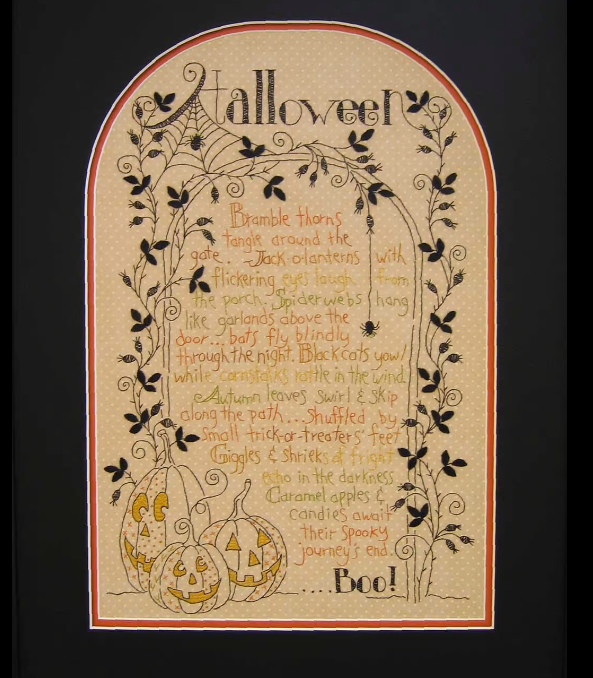 Halloween
Bramble thorns
tangle around the
gate. - Jack-o-lanterns with
flickering eyes laugh from
the porch. Spiderwebs hang
like garlands above the
door... bats fly blindly
through the night. Black cats yowl
while cornstalks rattle in the wind.
Autumn leaves swirl & skip
along the path... Shuffled by
small trick-or-treaters' feet
Giggles & Shrieks of fright
echo in the darkness
Caramel apples &
candies await
their Spooky
journey's end.
....Boo!